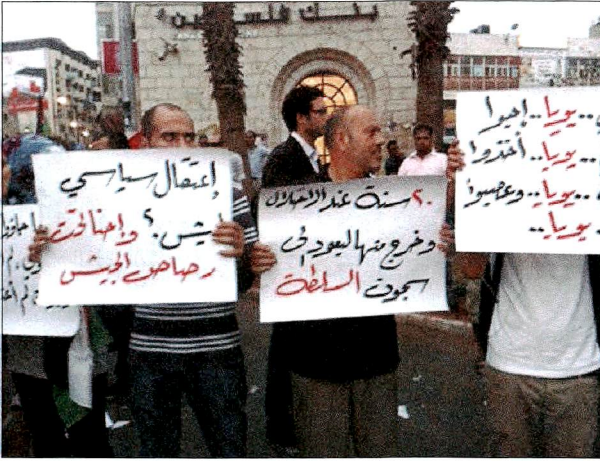 بنك فلسطين
إعتقال سياسي
ليش؟ واحنا تحت
رصاص الجيش
٢٠ سنة عند الاحتلال
وخرج منها ليعود إلى
سجون السلطة
..يويا..إجوا
..يويا..أخذوا
..يويا..وعصبوا
يويا..